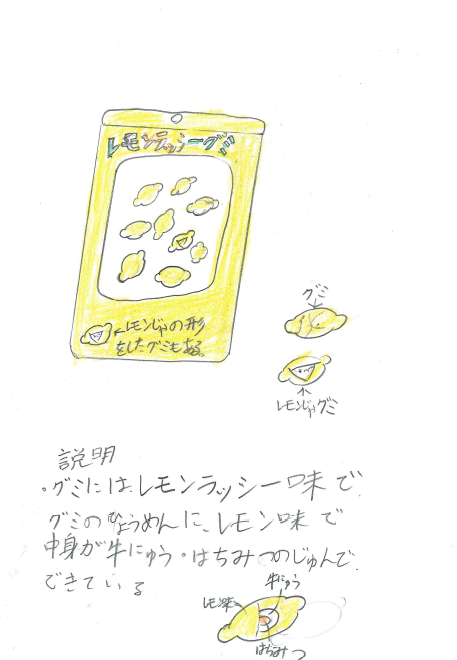 レモンラッシーグミ
←レモンじゃの形
をしたグミもある。
グミ
レモンじゃグミ
説明
・グミにはレモンラッシー味で
グミのひょうめんに、レモン味で
中身が牛にゅう・はちみつのじゅんで
できている
牛にゅう
レモン味
はちみつ